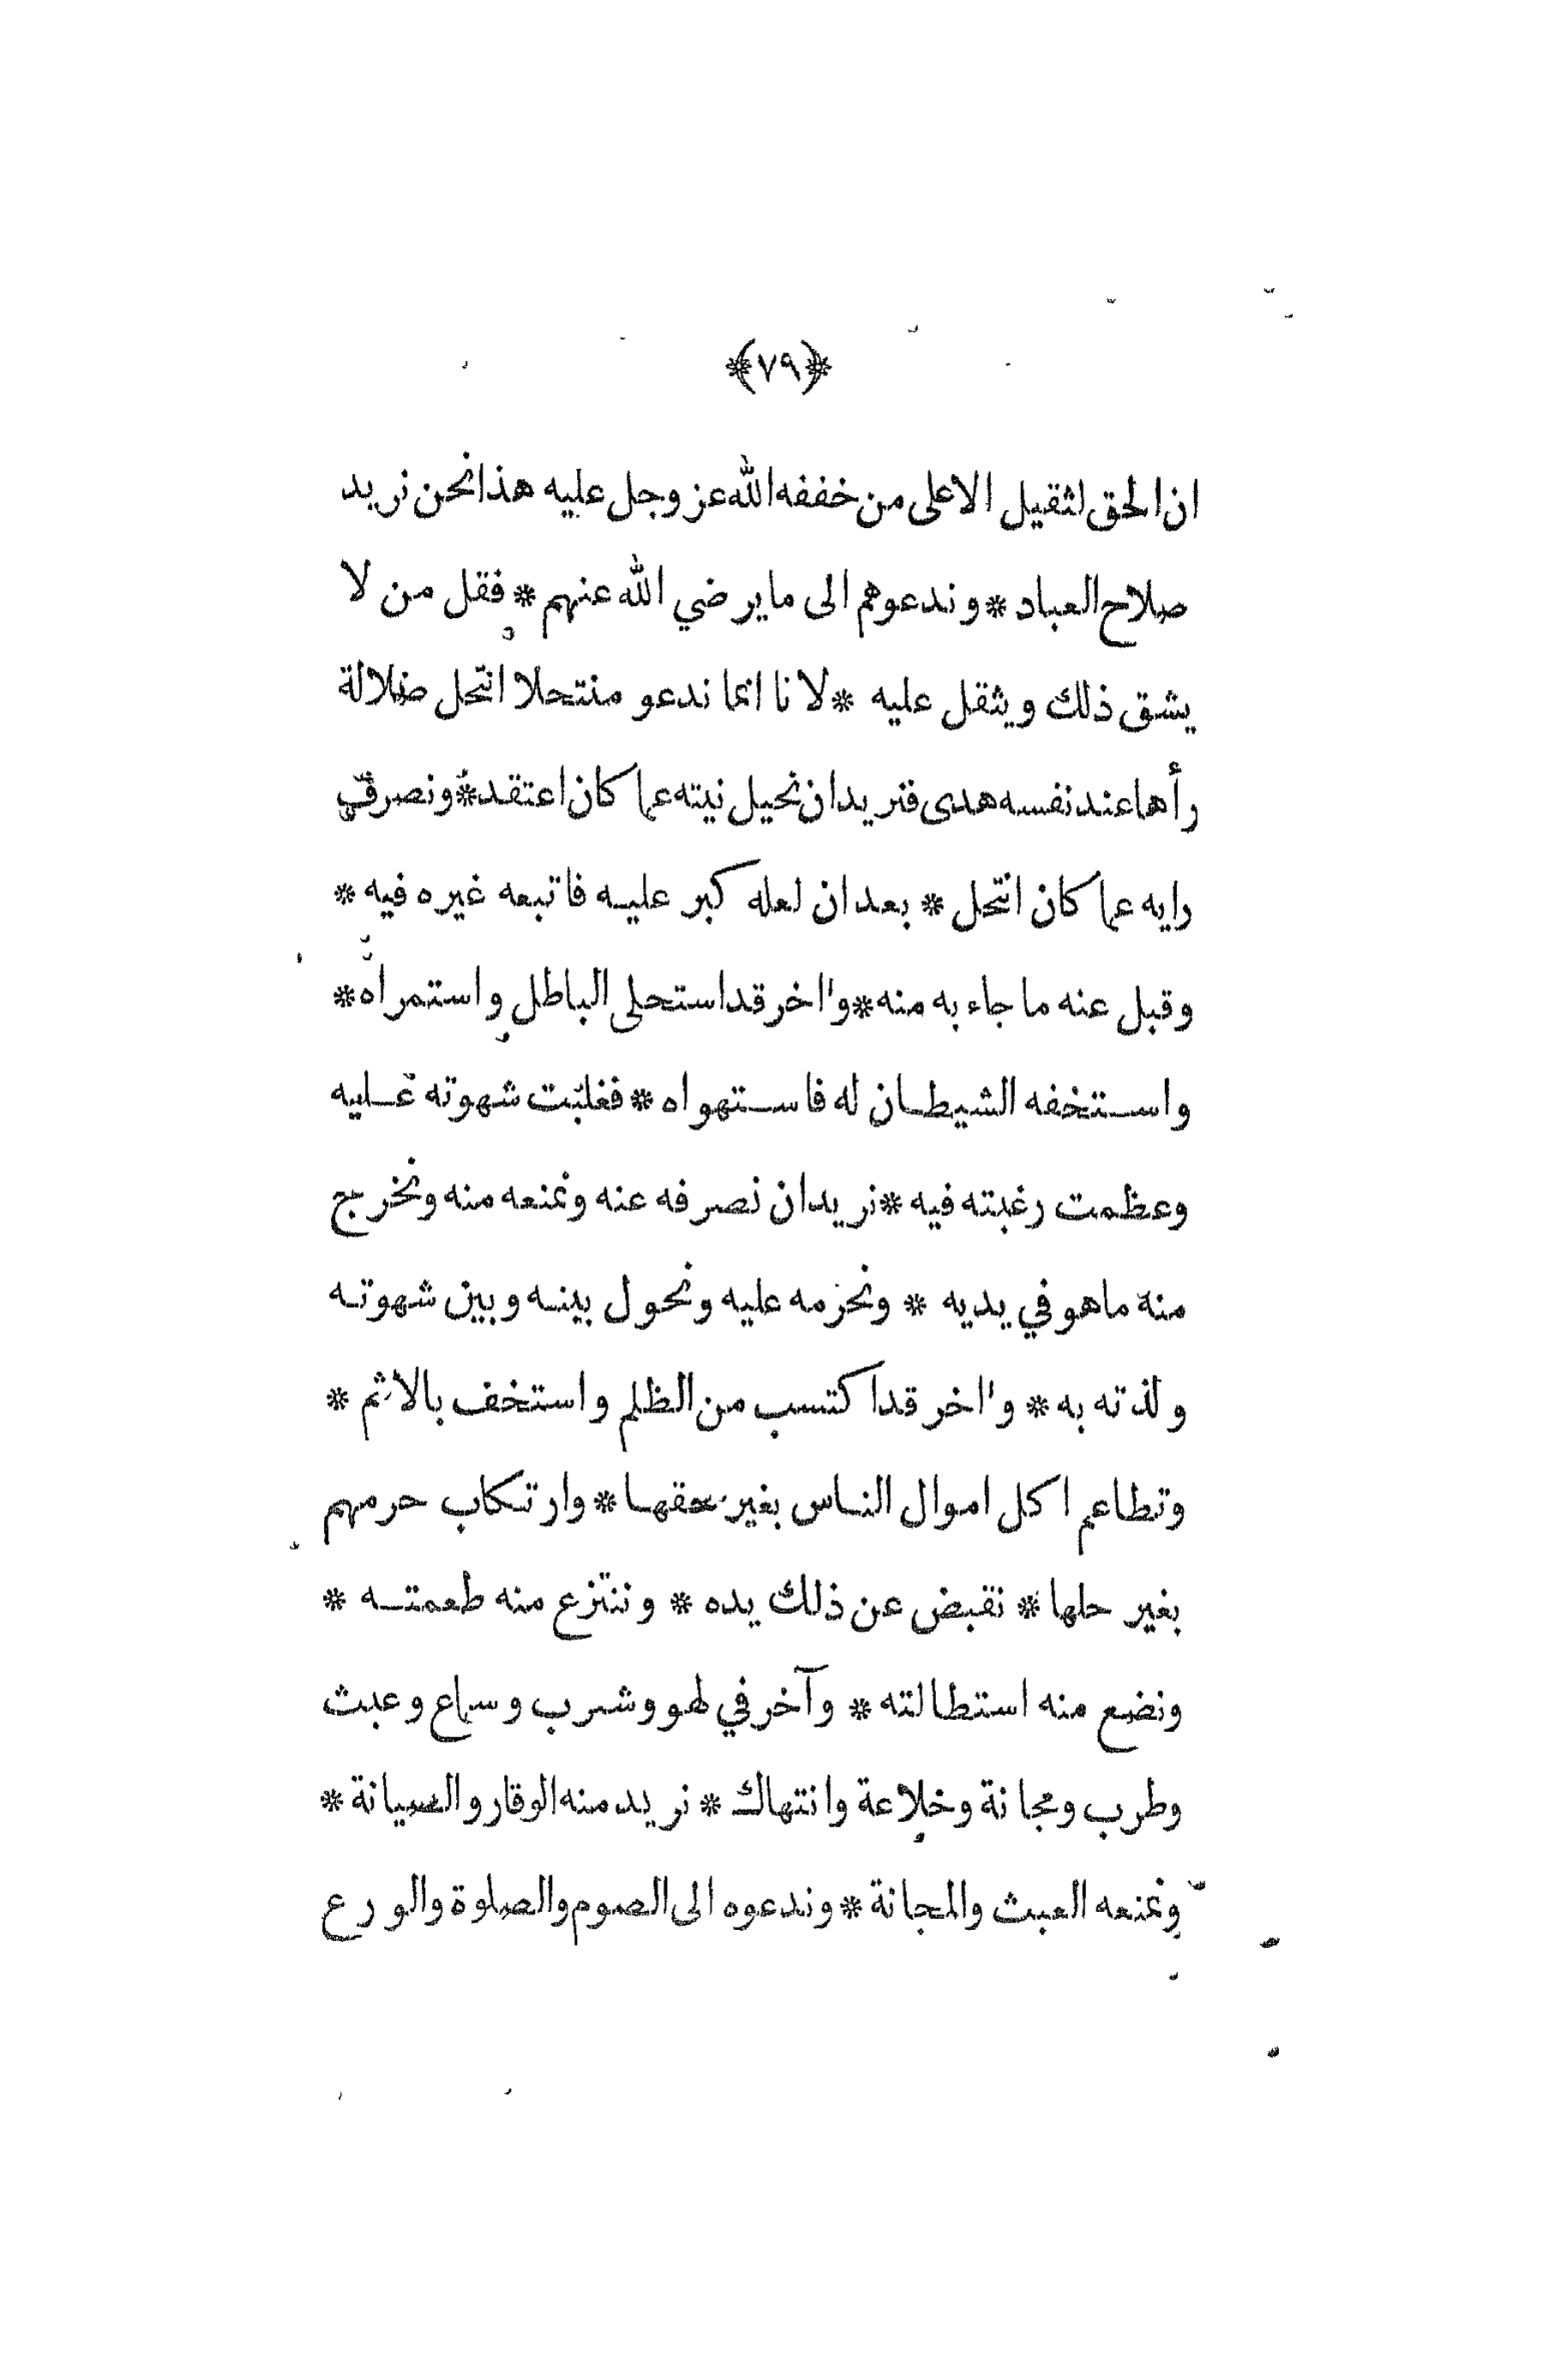 ﴿٧٩﴾
ان الحق لثقيل الا على من خففه الله عز وجل عليه هذا نحن نريد
صلاح العباد * وندعوهم الى ما يرضي الله عنهم * فقل من لا
يشق ذلك ويثقل عليه * لانا انما ندعو منتحلا انتحل ضلالة
رأها عند نفسه هدى فنريد ان نحيل نيته عما كان اعتقد * ونصرف
رايه عما كان انتحل * بعد ان لعله كبر عليه فاتبعه غيره فيه *
وقبل عنه ما جاء به منه * و'اخر قد استحلى الباطل واستمراه *
واستخفه الشيطان له فاستهواه * فغلبت شهوته عليه
وعظمت رغبته فيه * نريد ان نصرفه عنه ونمنعه منه ونخرج
منه ما هو في يديه * ونحرمه عليه ونحول بينه وبين شهوته
ولذته به * و'اخر قد اكتسب من الظلم واستخف بالاثم *
وتطاعم اكل اموال الناس بغير حقها * وارتكاب حرمهم
بغير حلها * نقبض عن ذلك يده * وننتزع منه طعمته *
ونضع منه استطالته * وآخر في لهو وشرب وسماع وعبث
وطرب ومجانة وخلاعة وانتهاك * نريد منه الوقار والصيانة *
ونمنعه العبث والمجانة * وندعوه الى الصوم والصلوة والورع